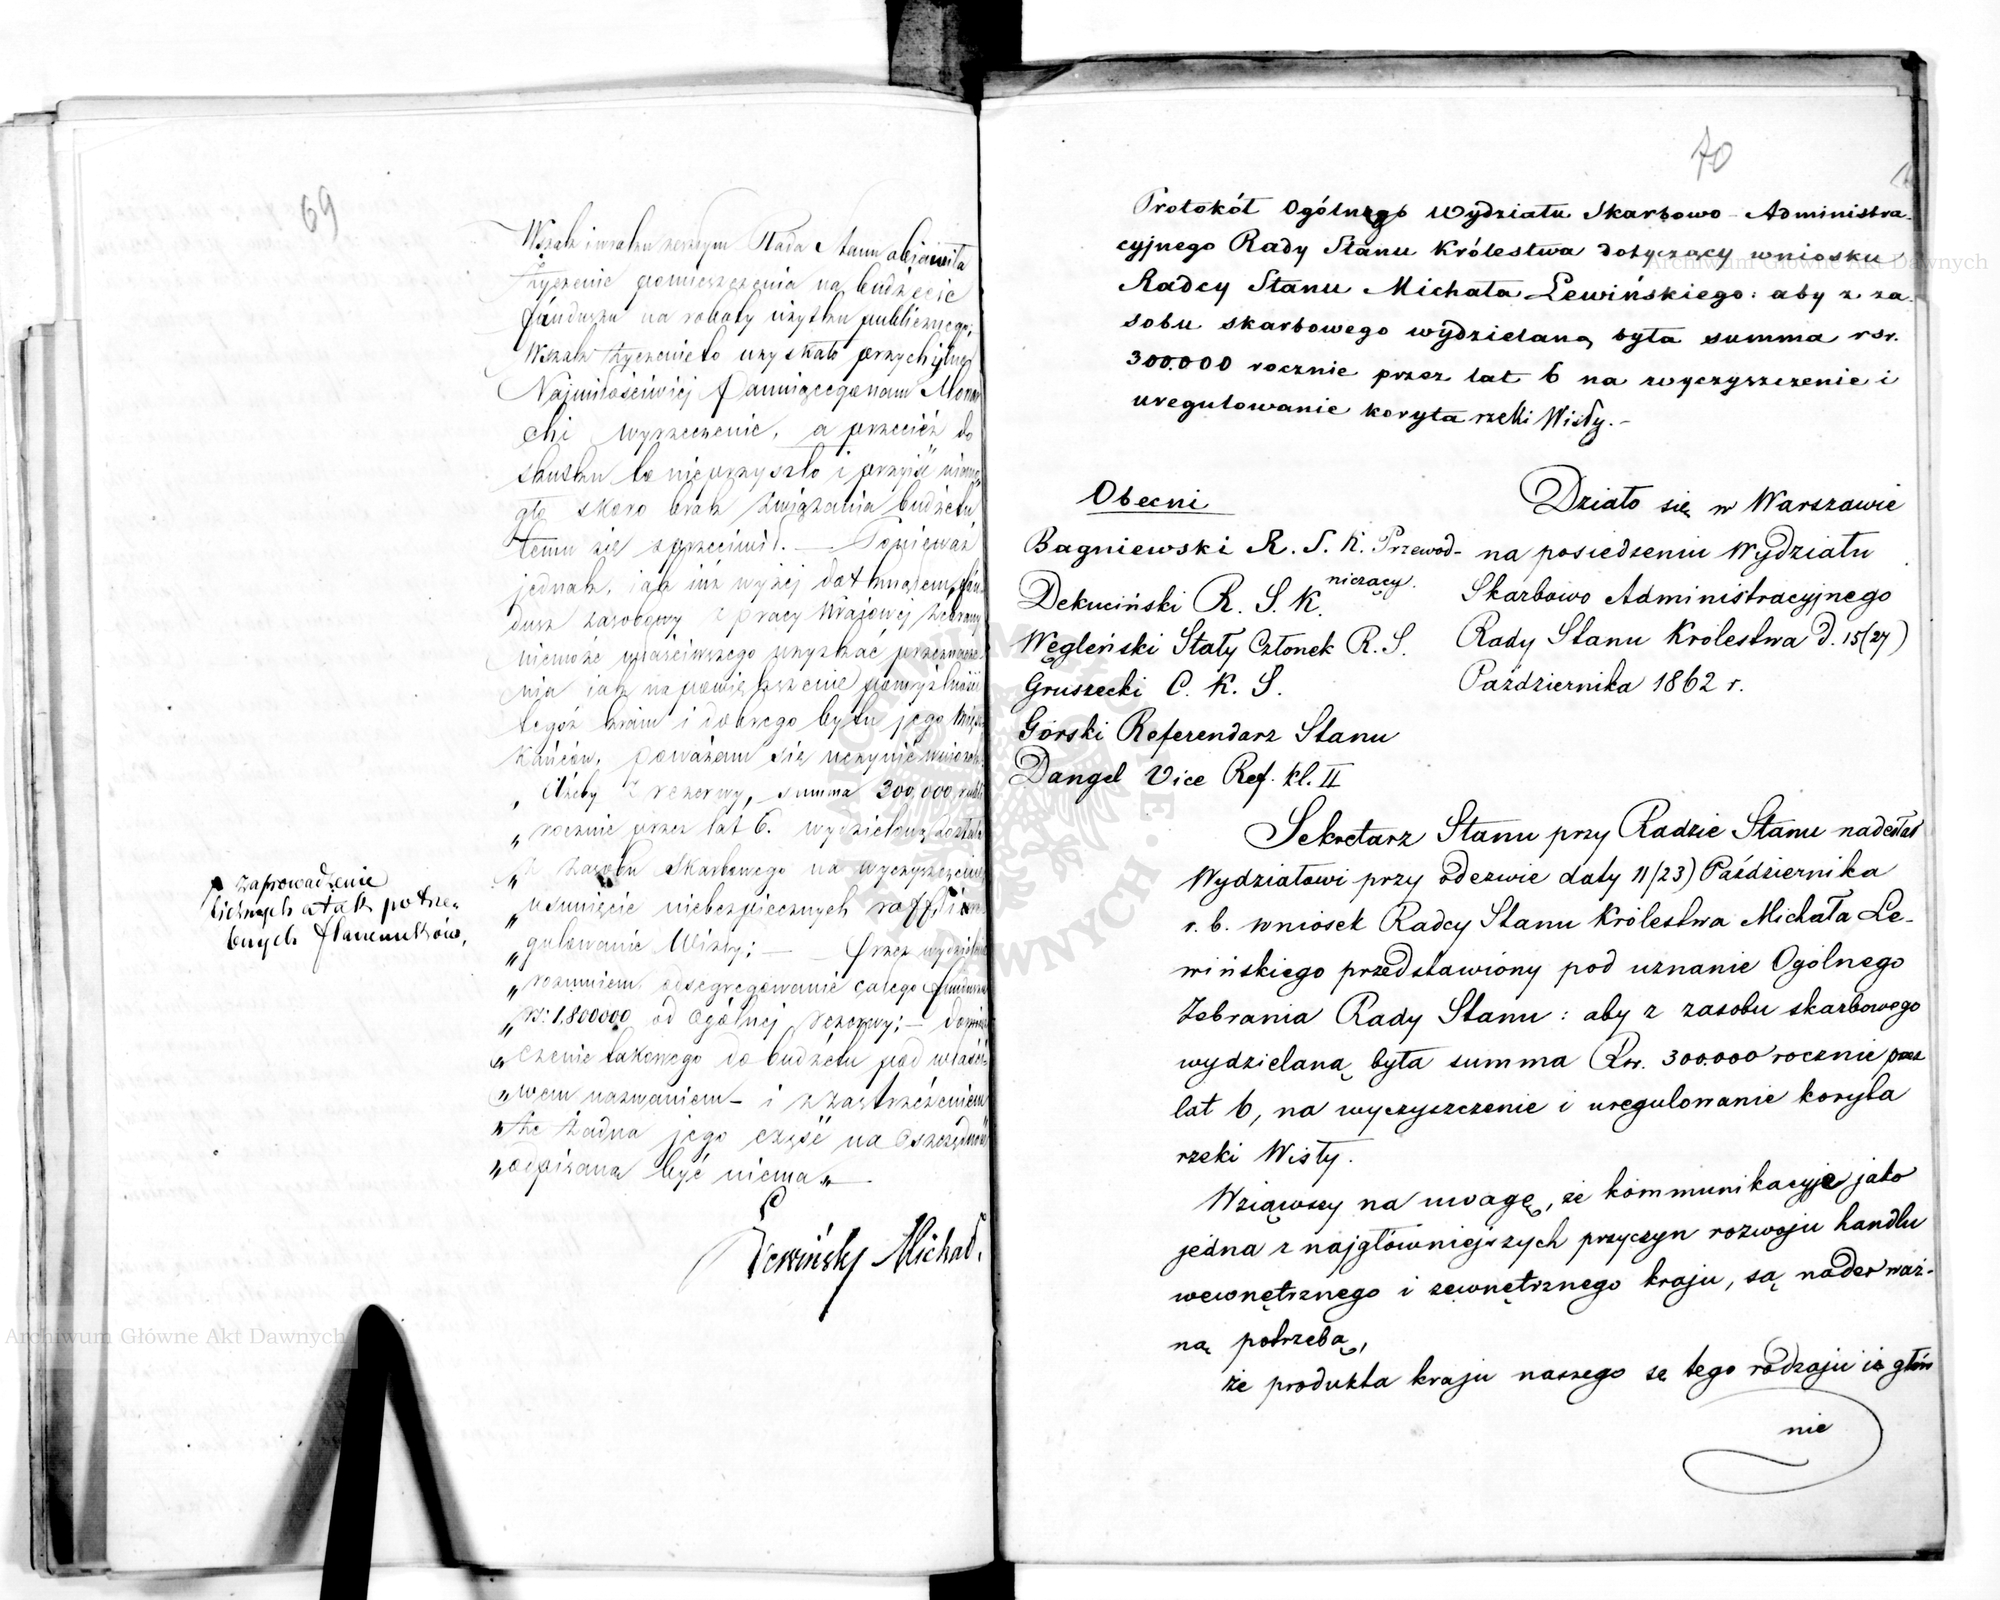 69
Wszak i w roku zeszłym Rada Stanu objawiła
życzenie pomieszczenia na budżecie
funduszu na roboty użytku publicznego;
Wszak życzenie to uzyskało przychylne
Najmiłościwiej Panującego nam Monar
chi wyrzeczenie, a przecież do
skutku to nie przyszło i przyjść niemo
gło skoro brak związania budżetu
temu się sprzeciwił. — Ponieważ
jednak, jak już wyżej dotknąłem, fun
dusz zasobowy z pracy krajowej zebrany
niemoże właściwszego uzyskać przeznacze
nia jak na powiększenie pomyślności
tegoż kraju i dobrego bytu jego miesz
kańców, poważam się uczynić wniosek.
„ Ażeby z rezerwy, summa 300,000 rubli
„ rocznie przez lat 6. wydzieloną została
„ z zasobu skarbowego na wyczyszczenie
„ usunięcie niebezpiecznych raff, i ure
„ gulowanie Wisły; — Przez wydzielenie
„ rozumiem odsegregowanie całego funduszu
„ rs: 1,800000 od ogólnej rezerwy; — domiesz
„ czenie takowego do budżetu pod właści
„ wem nazwaniem — i z zastrzeżeniem
„ że żadna jego część na oszczędność
„ odpisana być niema „ —
Lewiński Michał.
zaprowadzenie
licznych a tak potrze-
bnych statków,
70
Protokół Ogólnego Wydziału Skarbowo-Administra-
cyjnego Rady Stanu Królestwa dotyczący wniosku
Radcy Stanu Michała Lewińskiego: aby z za-
sobu skarbowego wydzielaną była summa rsr.
300.000 rocznie przez lat 6 na wyczyszczenie i
uregulowanie koryta rzeki Wisły. –
Obecni
Bagniewski R. S. K. Przewod-
niczący.
Dekuciński R. S. K.
Węgleński Stały Członek R. S.
Gruszecki C. K. S.
Górski Referendarz Stanu
Dangel Vice Ref. kl. II
Działo się w Warszawie
na posiedzeniu Wydziału
Skarbowo Administracyjnego
Rady Stanu Królestwa d. 15(27)
Października 1862 r.
Sekretarz Stanu przy Radzie Stanu nadesłał
Wydziałowi przy odezwie daty 11/23) Października
r. b. wniosek Radcy Stanu Królestwa Michała Le-
wińskiego przedstawiony pod uznanie Ogólnego
Zebrania Rady Stanu: aby z zasobu skarbowego
wydzielaną była summa Rsr. 300.000 rocznie przez
lat 6, na wyczyszczenie i uregulowanie koryta
rzeki Wisły.
Wziąwszy na uwagę, że kommunikacyje jako
jedna z najgłówniejszych przyczyn rozwoju handlu
wewnętrznego i zewnętrznego kraju, są nader waż-
ną potrzebą,
że produkta kraju naszego są tego rodzaju iż głów
nie
Archiwum Główne Akt Dawnych
Archiwum Główne Akt Dawnych